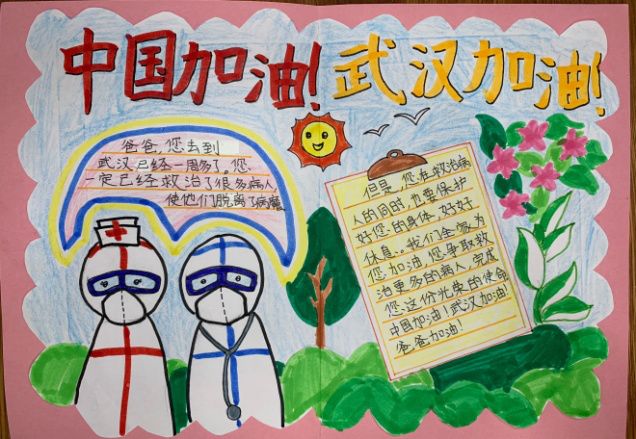 中国加油！武汉加油！
爸爸，您去到
武汉已经一周多了。您
一定已经救治了很多病人
使他们脱离了病魔。
但是，您在救治病
人的同时，也要保护
好您的身体，好好
休息。我们全家为
您加油，您争取救
治更多的病人，完成
您这份光荣的使命
中国加油！武汉加油！
爸爸加油！